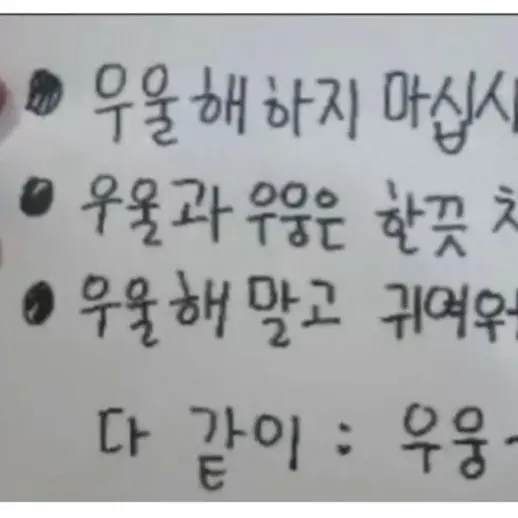 우울해하지 마십시
우울과 우웅은 한끗
우울해 말고 귀여워
다 같이 : 우웅